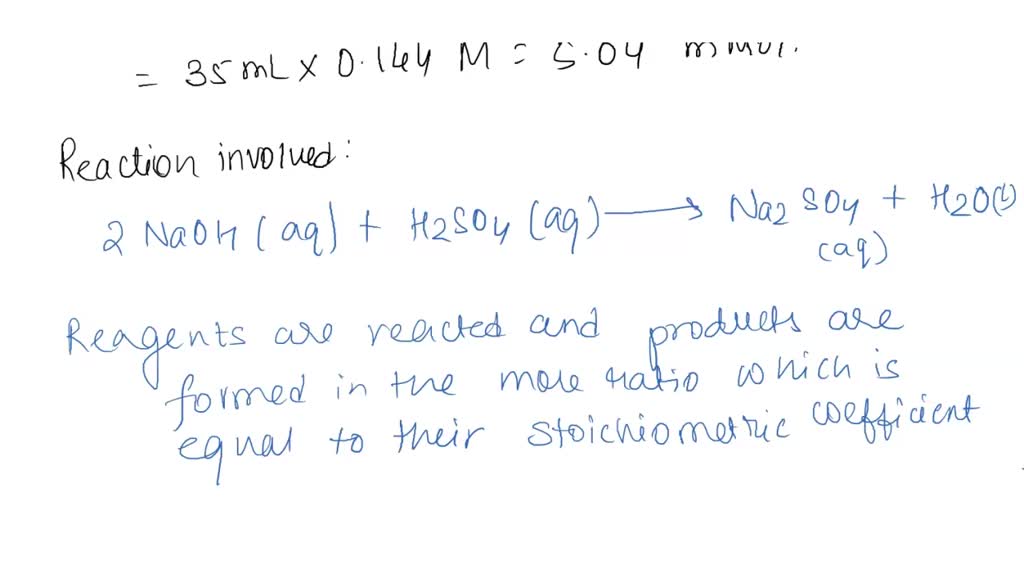 = 35 mL X 0.144 M = 5.04 mmol.
Reaction involved:
2 NaOH (aq) + H2SO4 (aq) → Na2 SO4 + H2O(l)
(aq)
Reagents are reacted and products are
formed in the mole ratio which is
equal to their stoichiometric coefficient